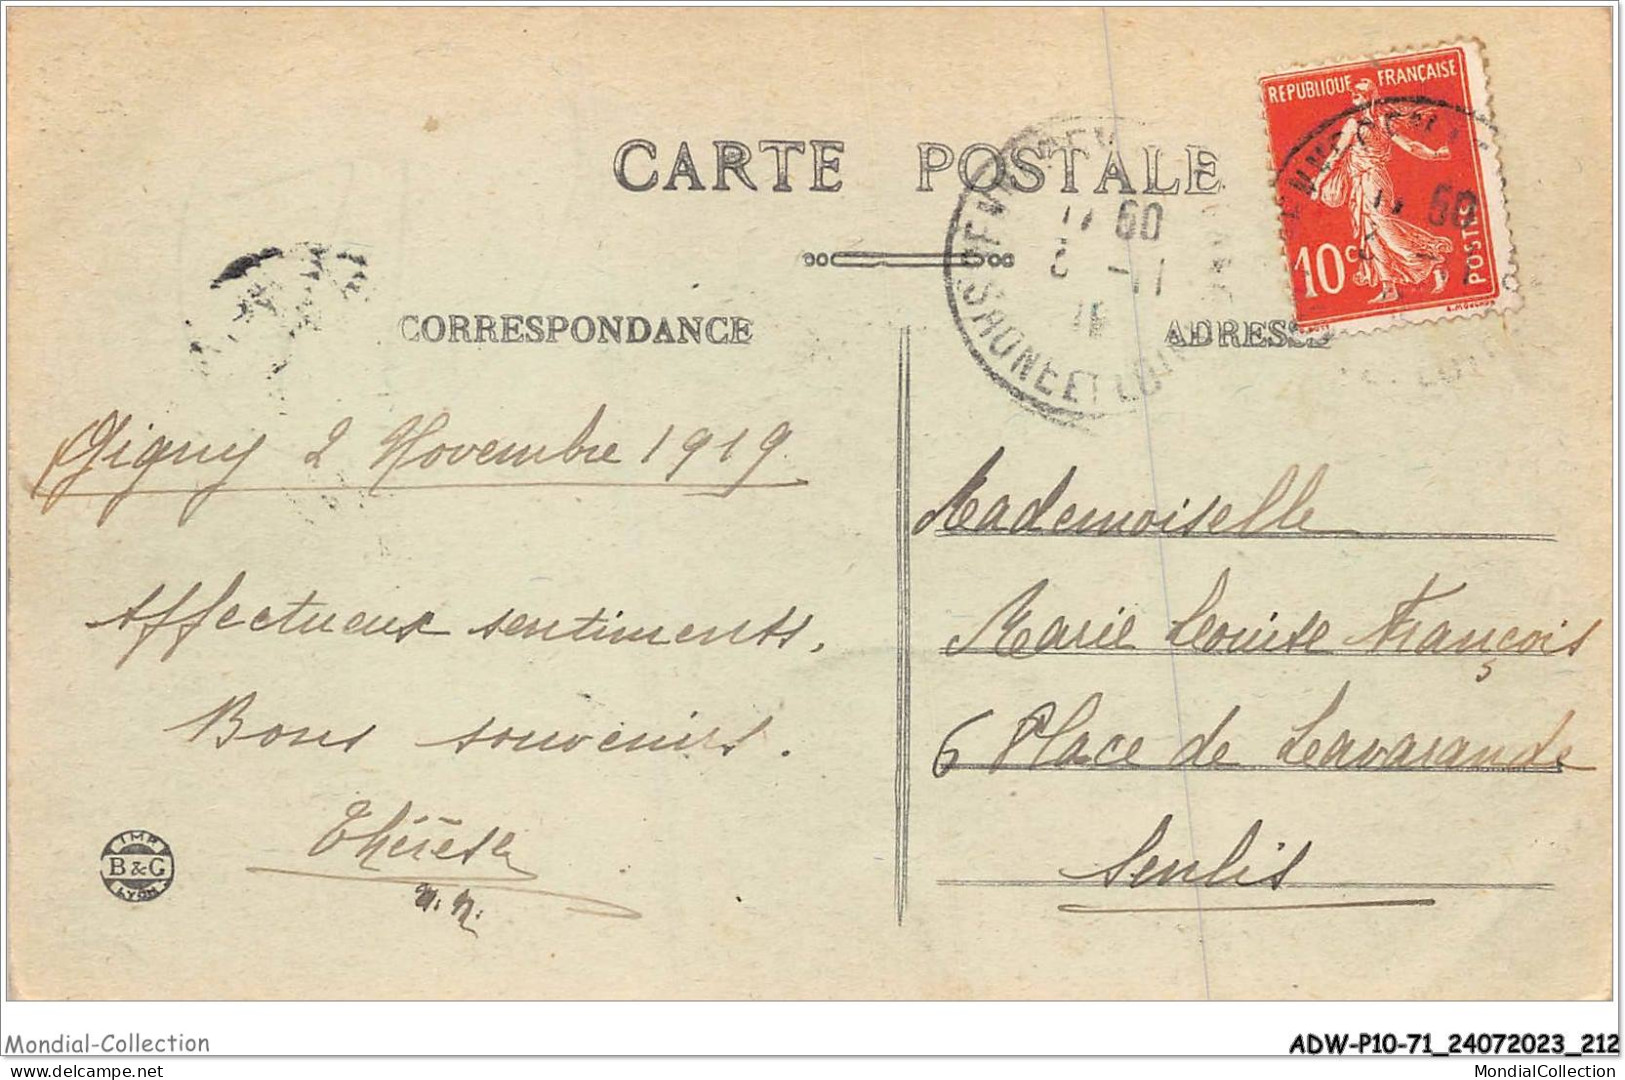 CARTE POSTALE
REPUBLIQUE FRANÇAISE
10 c
POSTES
17 50
-11
SAONE ET LOIRE
50
CORRESPONDANCE
ADRESSE
Gigny 2 Novembre 1919
Affectueux sentiments,
Bons souvenirs.
Thérèse
n. n.
IMP.
B & G
LYON
Mademoiselle
Marie Louise François
6 Place de Lavarande
Senlis
Mondial-Collection
ADW-P10-71_24072023_212
delcampe.net
MondialCollection